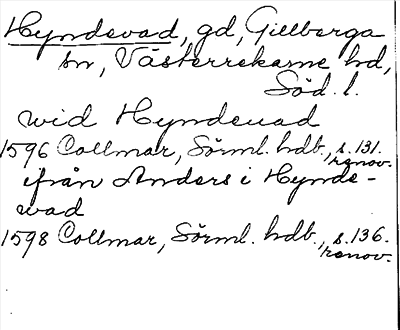 Hyndevad, gd, Gillberga
sn, Västerrekarne hd,
Söd. l.
wid Hyndeuad
1596 Collmar, Sörml. hdb., s. 131.
renov.
ifrån Anders i Hynde-
wad
1598 Collmar, Sörml. hdb., s. 136.
renov.